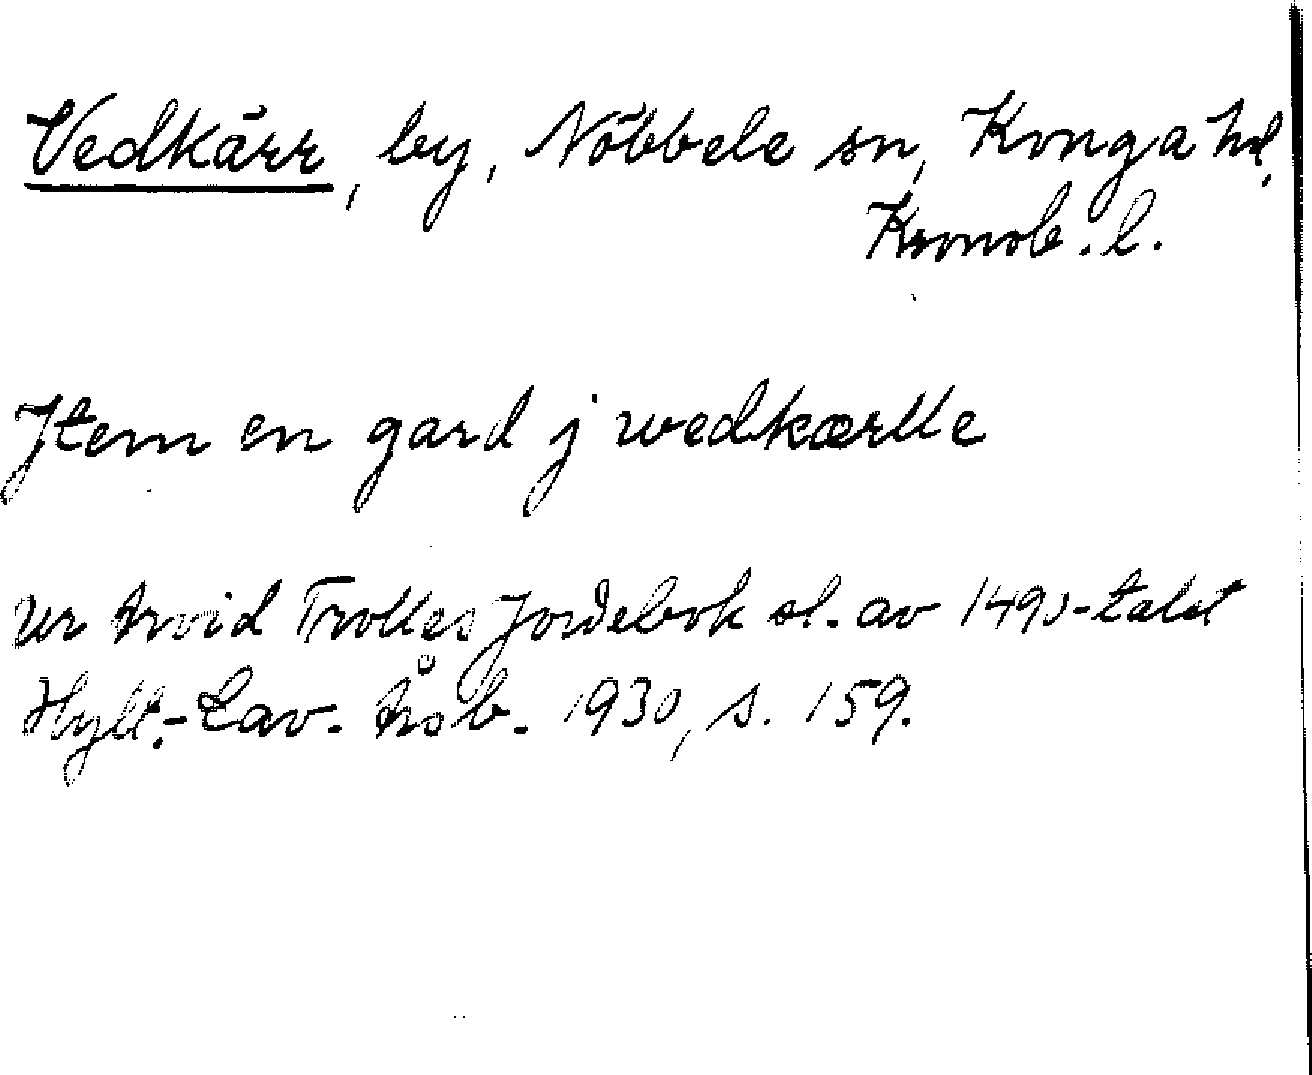 Vedkärr, by, Nöbbele sn, Konga hd,
Kronob. l.
Jtem en gard j wedkærlle
ur Arvid Trolles Jordebok sl. av 1490-talet
Hylt.-Cav. Årsb. 1930, s. 159.